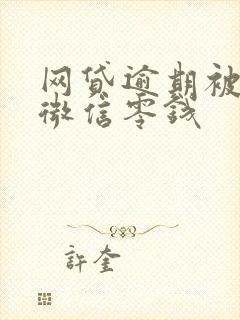 网贷逾期被
微信零钱
許奎